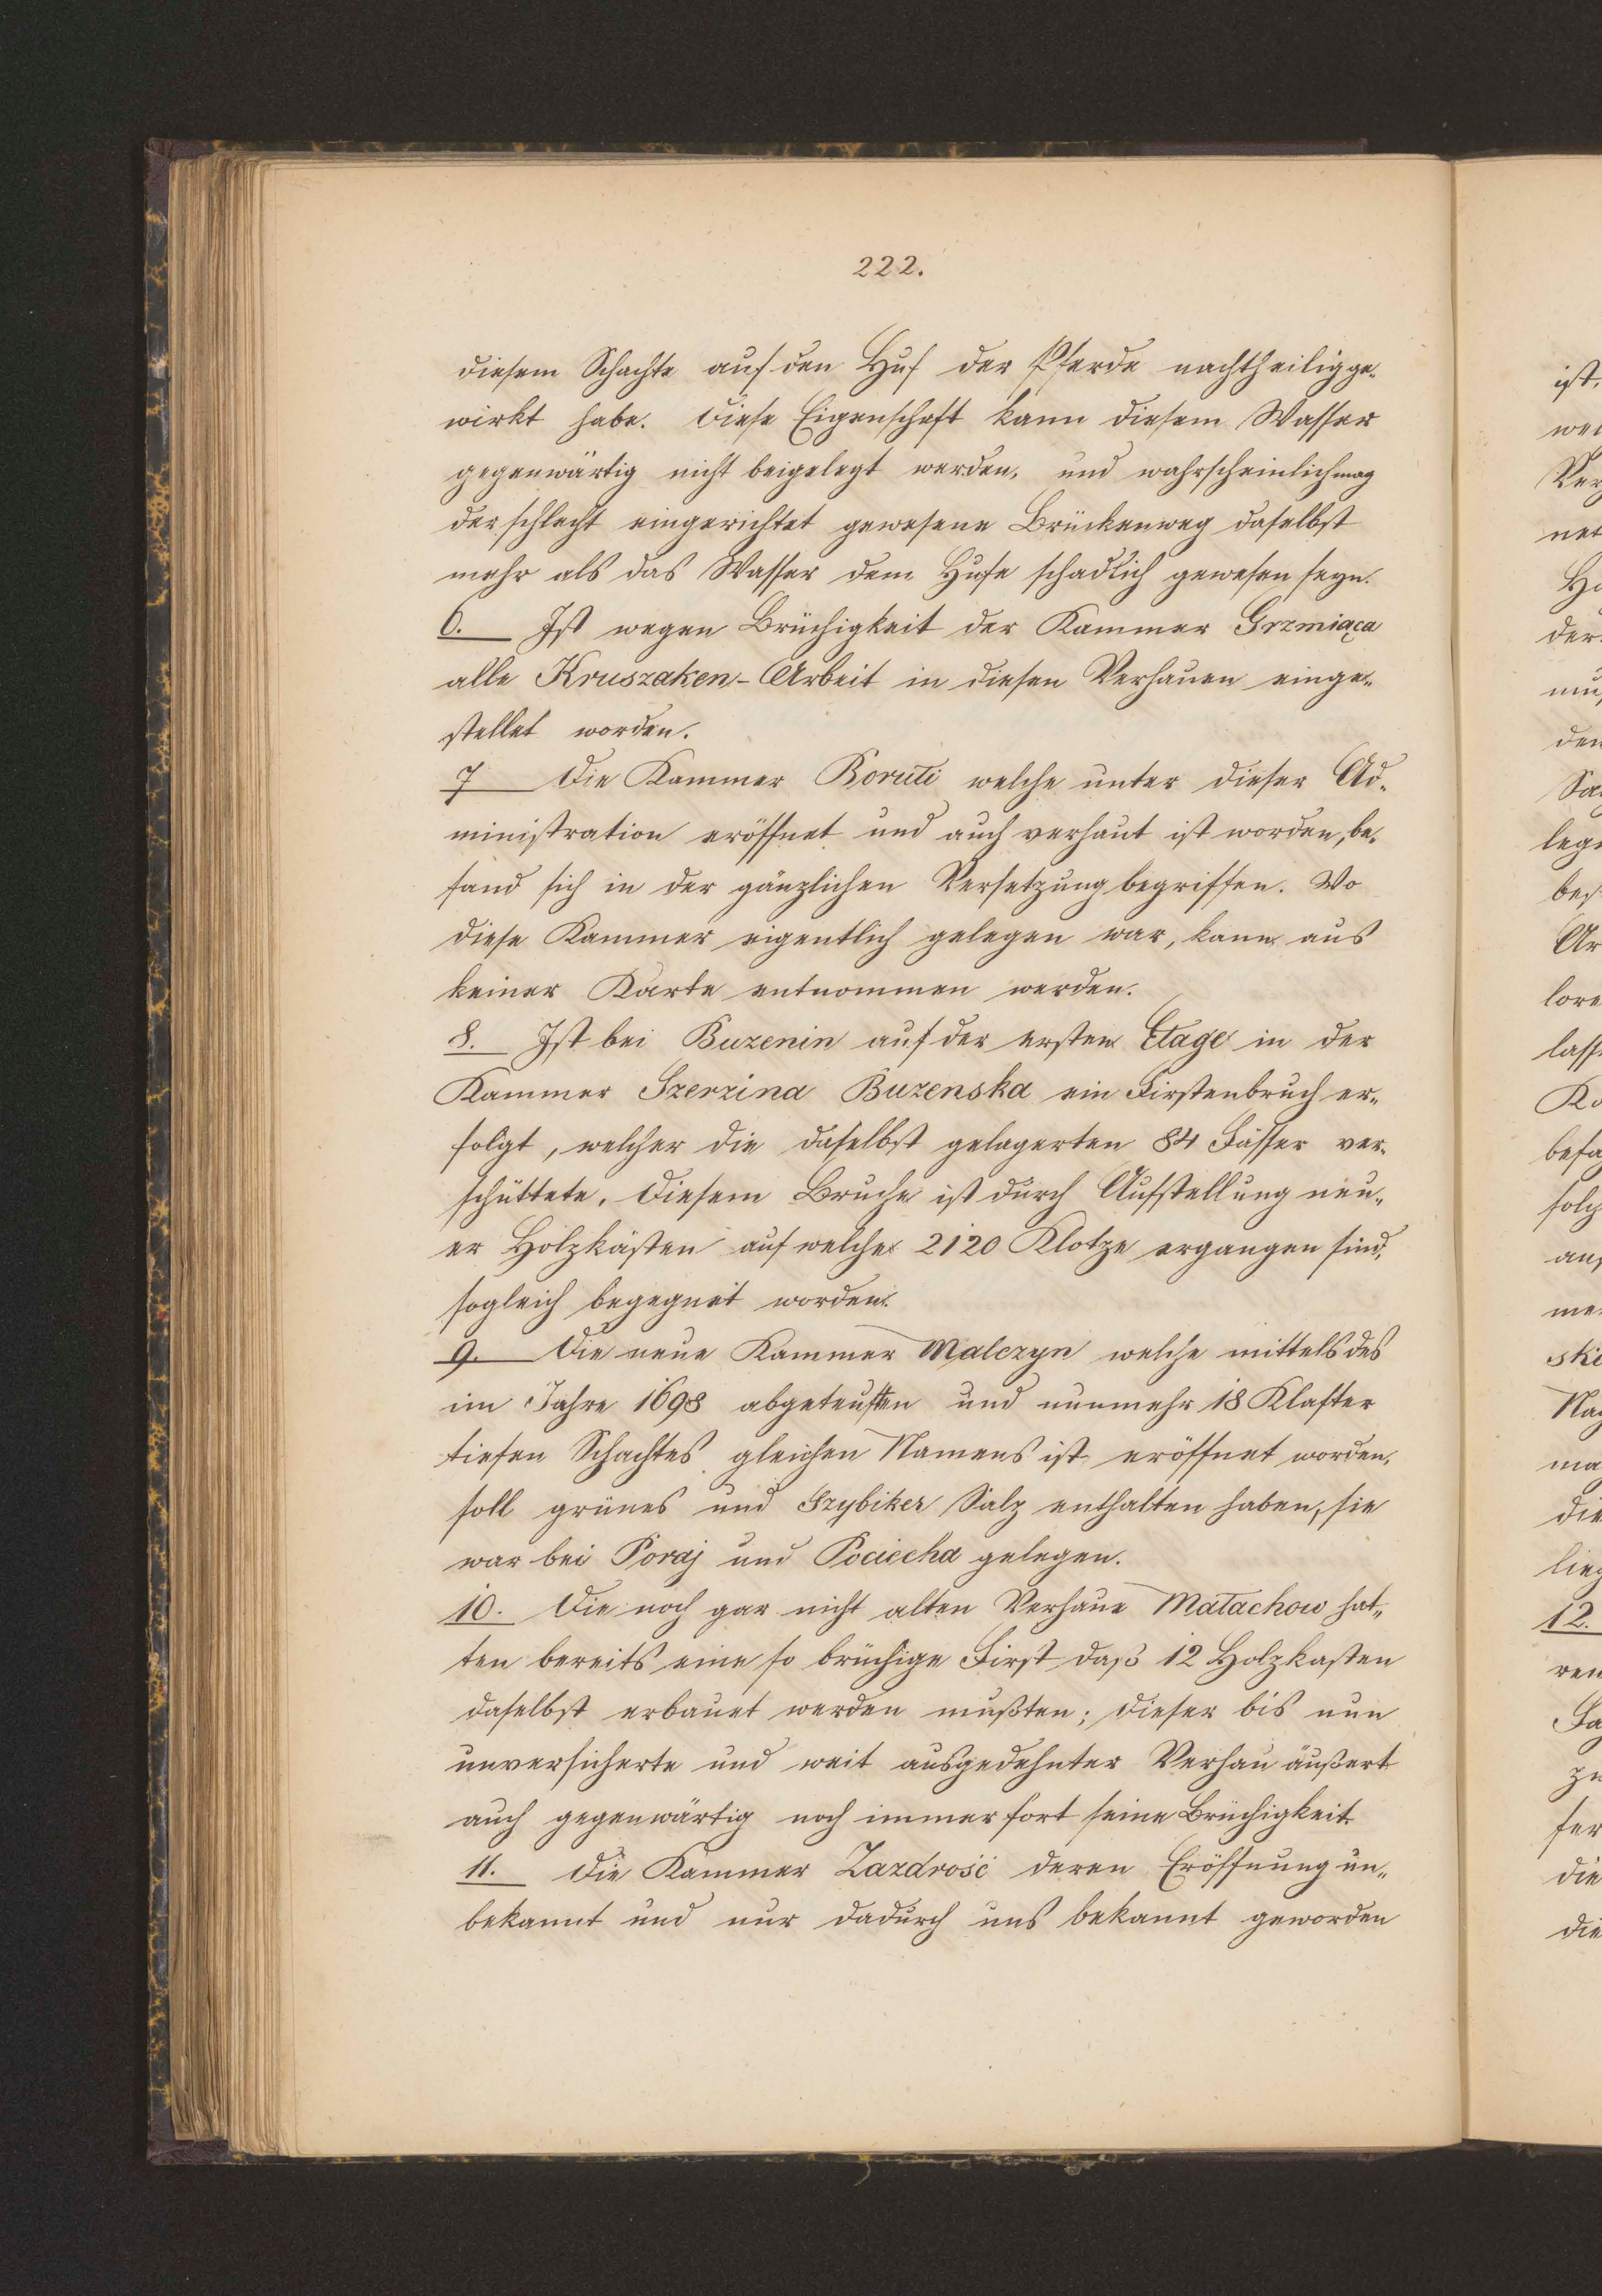 222.
diesem Schachte auf den Huf der Pferde nachtheilig ge-
wirkt habe. Diese Eigenschaft kann diesem Wasser
gegenwärtig nicht beigelegt werden, und wahrscheinlich mag
der schlecht eingerichtet gewesene Brückenweg daselbst
mehr als das Wasser dem Hufe schadlich gewesen seyn.
6. Ist wegen Brüchigkeit der Kammer Grzmiąca
alle Kruszaken-Arbeit in diesen Verhauen einge-
stellet worden.
7 Die Kammer Boruti welche unter dieser Ad-
ministration eröffnet und auch verhaut ist worden, be-
fand sich in der gänzlichen Versetzung begriffen. Wo
diese Kammer eigentlich gelegen war, kann aus
keiner Karte entnommen werden.
8. Ist bei Buzenin auf der ersten Etage in der
Kammer Szerzina Buzenska ein Firstenbruch er-
folgt, welcher die daselbst gelagerten 84 Fässer ver-
schüttete. Diesem Bruche ist durch Aufstellung neu-
er Holzkästen auf welche 2120 Klotze ergangen sind,
sogleich begegnet worden.
9. Die neue Kammer Malczyn welche mittels des
im Jahre 1698 abgeteuften und nunmehr 18 Klafter
tiefen Schachtes gleichen Namens ist eröffnet worden,
soll grünes und Szybiker Salz enthalten haben, sie
war bei Poraj und Pociecha gelegen.
10. Die noch gar nicht alten Verhaue Małachow hat-
ten bereits eine so brüchige First daß 12 Holzkasten
daselbst erbauet werden mußten; dieser bis nun
unversicherte und weit ausgedehnter Verhau äußert
auch gegenwärtig noch immer fort seine Brüchigkeit
11. Die Kammer Zazdrość deren Eröffnung un-
bekannt und nur dadurch uns bekannt geworden